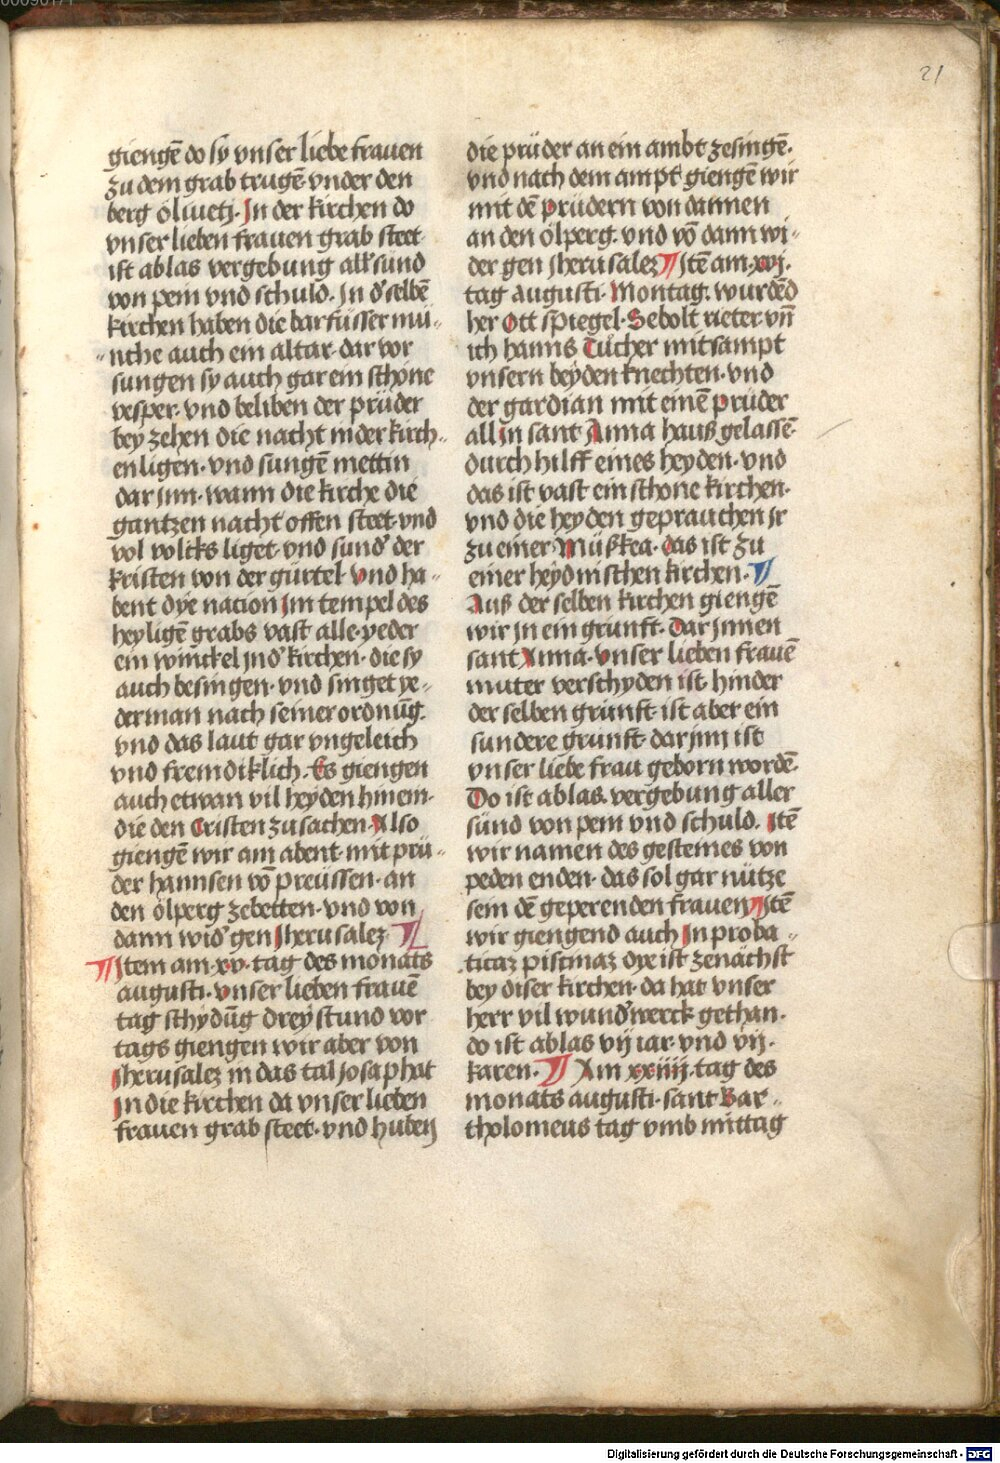 21
giengē do sy vnser liebe frauen
zu dem grab trugē vnder den
berg oliuetj. In der kirchen do
vnser lieben frauen grab steet
ist ablas vergebung all' sünd
von pein vnd schuld. In d' selbē
kirchen haben die barfüsser mü-
nche auch ein altar. dar vor
sungen sy auch gar ein schöne
vesper. vnd beliben der prüder
bey zehen die nacht in der kirch-
en ligen. vnd sungē mettin
dar jnn. wann die kirche die
gantzen nacht offen steet. vnd
vol volcks liget. vnd sund' der
kristen von der gürtel. vnd ha-
bent dye nacion jm tempel des
heyligē grabs vast alle. yeder
ein winckel jn d' kirchen. die sy
auch besingen. vnd singet ye-
derman nach seiner ordnūg.
vnd das laut gar vngeleich
vnd fremdiklich. Es giengen
auch etwan vil heyden hinein.
die den Cristen zu sachen. Also
giengē wir am abent. mit prü-
der hannsen vō preüssen. an
den ölperg zebetten. vnd von
dann wid' gen Jherusalez. ¶
¶ Item am .xv. tag des monats
augusti. vnser lieben frauē
tag schydūg drey stund vor
tags giengen wir aber von
Jherusalez in das tal josaphat
jn die kirchen da vnser lieben
frauen grab steet. vnd huben
die prüder an ein ambt zesingē.
vnd nach dem ampt giengē wir
mit dē prüdern von dannen
an den ölperg. vnd vō dann wi-
der gen Jherusalez ¶ Itē am .xvj.
tag augusti. Montag. wurdēd
her Ott spiegel. Sebolt rieter vn̄
ich hanns Tucher mitsampt
vnsern beyden knechten. vnd
der gardian mit einē prüder
all jn sant Anna hauß gelassē.
durch hilff eines heyden. vnd
das ist vast ein schone kirchen.
vnd die heyden geprauchen jr
zu einer Müßkea. das ist zu
einer heydnischen kirchen. ¶
Auß der selben kirchen giengē
wir jn ein grunft. Dar jnnen
sant Anna. vnser lieben frauē
muter verschyden ist. hinder
der selben grunft ist aber ein
sundere grunft. dar jnn ist
vnser liebe frau geborn wordē.
Do ist ablas. vergebung aller
sünd von pein vnd schuld. Itē
wir namen des gesteines von
peden enden. das sol gar nütze
sein dē geperenden frauen ¶ Itē
wir giengend auch jn proba-
ticaz piscinaz dye ist zenächst
bey diser kirchen. da hat vnser
herr vil wund'werck gethan.
do ist ablas vij iar. vnd vij.
karen. ¶ Am xxiiij. tag des
monats augusti. sant Bar-
tholomeus tag vmb mittag
Digitalisierung gefördert durch die Deutsche Forschungsgemeinschaft - DFG